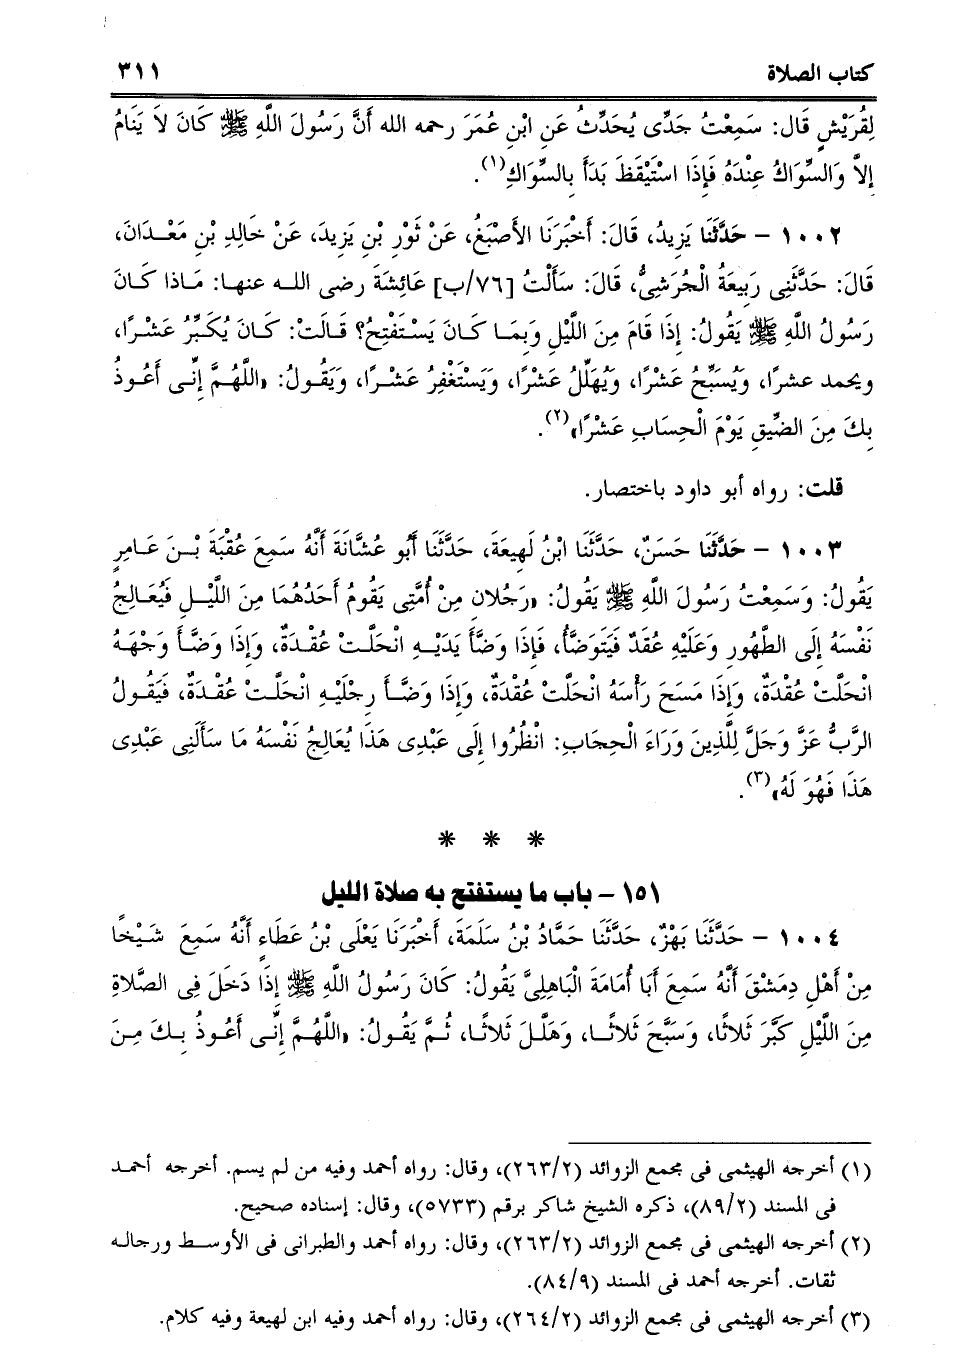 كتاب الصلاة ٣١١
لِقُرَيْشٍ قَال: سَمِعْتُ جَدِّى يُحَدِّثُ عَنِ ابْنِ عُمَرَ رحمه الله أَنَّ رَسُولَ اللَّهِ ﷺ كَانَ لاَ يَنَامُ
إِلاَّ وَالسِّوَاكُ عِنْدَهُ فَإِذَا اسْتَيْقَظَ بَدَأَ بِالسِّوَاكِ(١).
١٠٠٢ – حَدَّثَنَا يَزِيدُ، قَالَ: أَخْبَرَنَا الأَصْبَغُ، عَنْ ثَوْرِ بْنِ يَزِيدَ، عَنْ خَالِدِ بْنِ مَعْدَانَ،
قَالَ: حَدَّثَنِى رَبِيعَةُ الْجُرَشِىُّ، قَالَ: سَأَلْتُ [٧٦/ب] عَائِشَةَ رضى الله عنها: مَاذا كَانَ
رَسُولُ اللَّهِ ﷺ يَقُولُ: إِذَا قَامَ مِنَ اللَّيْلِ وَبِمَا كَانَ يَسْتَفْتِحُ؟ قَالَتْ: كَانَ يُكَبِّرُ عَشْرًا،
ويحمد عشرًا، وَيُسَبِّحُ عَشْرًا، وَيُهَلِّلُ عَشْرًا، وَيَسْتَغْفِرُ عَشْرًا، وَيَقُولُ: «اللَّهُمَّ إِنِّى أَعُوذُ
بِكَ مِنَ الضِّيقِ يَوْمَ الْحِسَابِ عَشْرًا»(٢).
قلت: رواه أبو داود باختصار.
١٠٠٣ – حَدَّثَنَا حَسَنٌ، حَدَّثَنَا ابْنُ لَهِيعَةَ، حَدَّثَنَا أَبُو عُشَّانَةَ أَنَّهُ سَمِعَ عُقْبَةَ بْنَ عَامِرٍ
يَقُولُ: وَسَمِعْتُ رَسُولَ اللَّهِ ﷺ يَقُولُ: «رَجُلاَنِ مِنْ أُمَّتِى يَقُومُ أَحَدُهُمَا مِنَ اللَّيْلِ فَيُعَالِجُ
نَفْسَهُ إِلَى الطَّهُورِ وَعَلَيْهِ عُقَدٌ فَيَتَوَضَّأُ، فَإِذَا وَضَّأَ يَدَيْهِ انْحَلَّتْ عُقْدَةٌ، وَإِذَا وَضَّأَ وَجْهَهُ
انْحَلَّتْ عُقْدَةٌ، وَإِذَا مَسَحَ رَأْسَهُ انْحَلَّتْ عُقْدَةٌ، وَإِذَا وَضَّأَ رِجْلَيْهِ انْحَلَّتْ عُقْدَةٌ، فَيَقُولُ
الرَّبُّ عَزَّ وَجَلَّ لِلَّذِينَ وَرَاءَ الْحِجَابِ: انْظُرُوا إِلَى عَبْدِى هَذَا يُعَالِجُ نَفْسَهُ مَا سَأَلَنِى عَبْدِى
هَذَا فَهُوَ لَهُ»(٣).
* * *
١٥١ – باب ما يستفتح به صلاة الليل
١٠٠٤ – حَدَّثَنَا بَهْزٌ، حَدَّثَنَا حَمَّادُ بْنُ سَلَمَةَ، أَخْبَرَنَا يَعْلَى بْنُ عَطَاءٍ أَنَّهُ سَمِعَ شَيْخًا
مِنْ أَهْلِ دِمَشْقَ أَنَّهُ سَمِعَ أَبَا أُمَامَةَ الْبَاهِلِىَّ يَقُولُ: كَانَ رَسُولُ اللَّهِ ﷺ إِذَا دَخَلَ فِى الصَّلاَةِ
مِنَ اللَّيْلِ كَبَّرَ ثَلاَثًا، وَسَبَّحَ ثَلاَثًا، وَهَلَّلَ ثَلاَثًا، ثُمَّ يَقُولُ: «اللَّهُمَّ إِنِّى أَعُوذُ بِكَ مِنَ
(١) أخرجه الهيثمى فى مجمع الزوائد (٢٦٣/٢)، وقال: رواه أحمد وفيه من لم يسم. أخرجه أحمد
فى المسند (٨٩/٢)، ذكره الشيخ شاكر برقم (٥٧٣٣)، وقال: إسناده صحيح.
(٢) أخرجه الهيثمى فى مجمع الزوائد (٢٦٣/٢)، وقال: رواه أحمد والطبرانى فى الأوسط ورجاله
ثقات. أخرجه أحمد فى المسند (٨٤/٩).
(٣) أخرجه الهيثمى فى مجمع الزوائد (٢٦٤/٢)، وقال: رواه أحمد وفيه ابن لهيعة وفيه كلام.